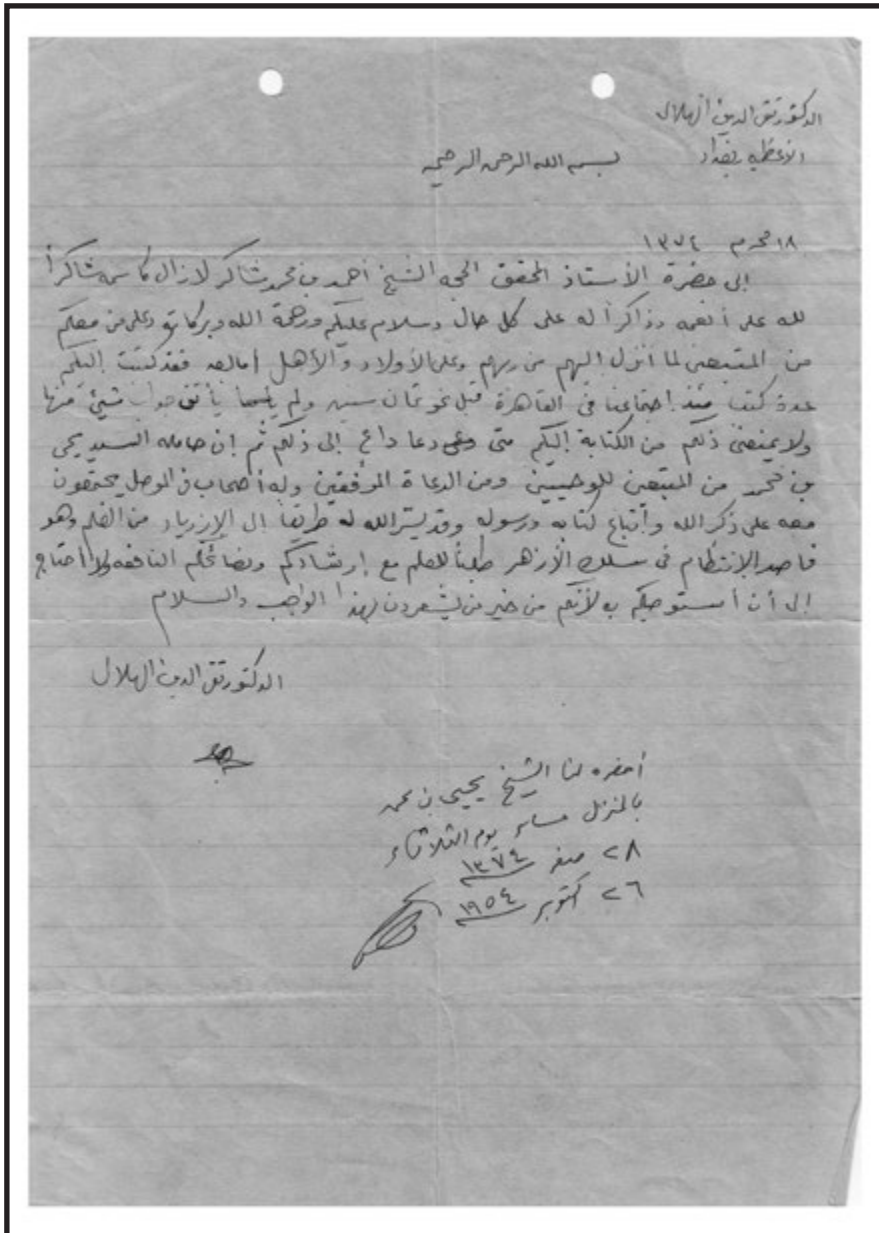 الدكتور تقي الدين الهلالي
الأعظمية بغداد
بسم الله الرحمن الرحيم
١٨ محرم ١٣٧٤
إلى حضرة الأستاذ المحقق الحجة الشيخ أحمد بن محمد شاكر لا زال كاسمه شاكراً
لله على أنعمه وذاكراً له على كل حال وسلام عليكم ورحمة الله وبركاته وعلى من معكم
من المتبعين لما أنزل إليهم من ربهم وعلى الأولاد والأهل أما بعد فقد كتبت إليكم
عدة كتب منذ اجتماعنا في القاهرة قبل نحو ثمان سنين ولم يأتني جواب شيء منها
ولا يمنعني ذلكم من الكتابة إليكم متى دعا داع إلى ذلكم ثم إن حامله السيد يحيى
بن محمد من المتبعين للوحيين ومن الدعاة الموفقين وله أصحاب في الموصل يجتمعون
معه على ذكر الله واتباع كتابه ورسوله وقد يسر الله له طريقا إلى الإزدياد من العلم وهو
قاصد الإنتظام في سلك الأزهر طلباً للعلم مع إرشادكم ونصائحكم النافعة ولا أحتاج
إلى أن أستوصيكم به لأنكم من خير من يشعرون بهذا الواجب والسلام
الدكتور تقي الدين الهلالي
أحضره لنا الشيخ يحيى بن محمد
بالمنزل مساء يوم الثلاثاء
٢٨ صفر ١٣٧٤
٢٦ أكتوبر ١٩٥٤